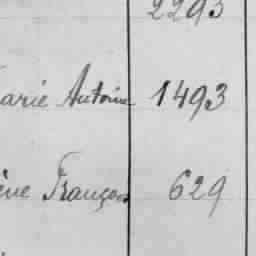 2293
arie Antoine 1493
ène François 629